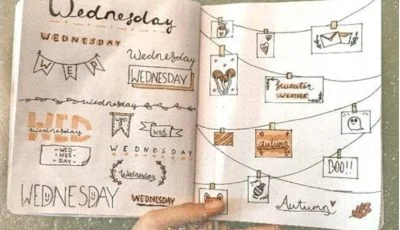 Wednesday
WEDNESDAY
WED
Wednesday
WEDNESDAY
wednesday
WED
wednesday
WED
WED
WED-
NES-
DAY-
WEDNESDAY
Wednesday
WEDNESDAY
WEDNESDAY
Sweater
WEATHER
autumn
BOO!!
Autumn